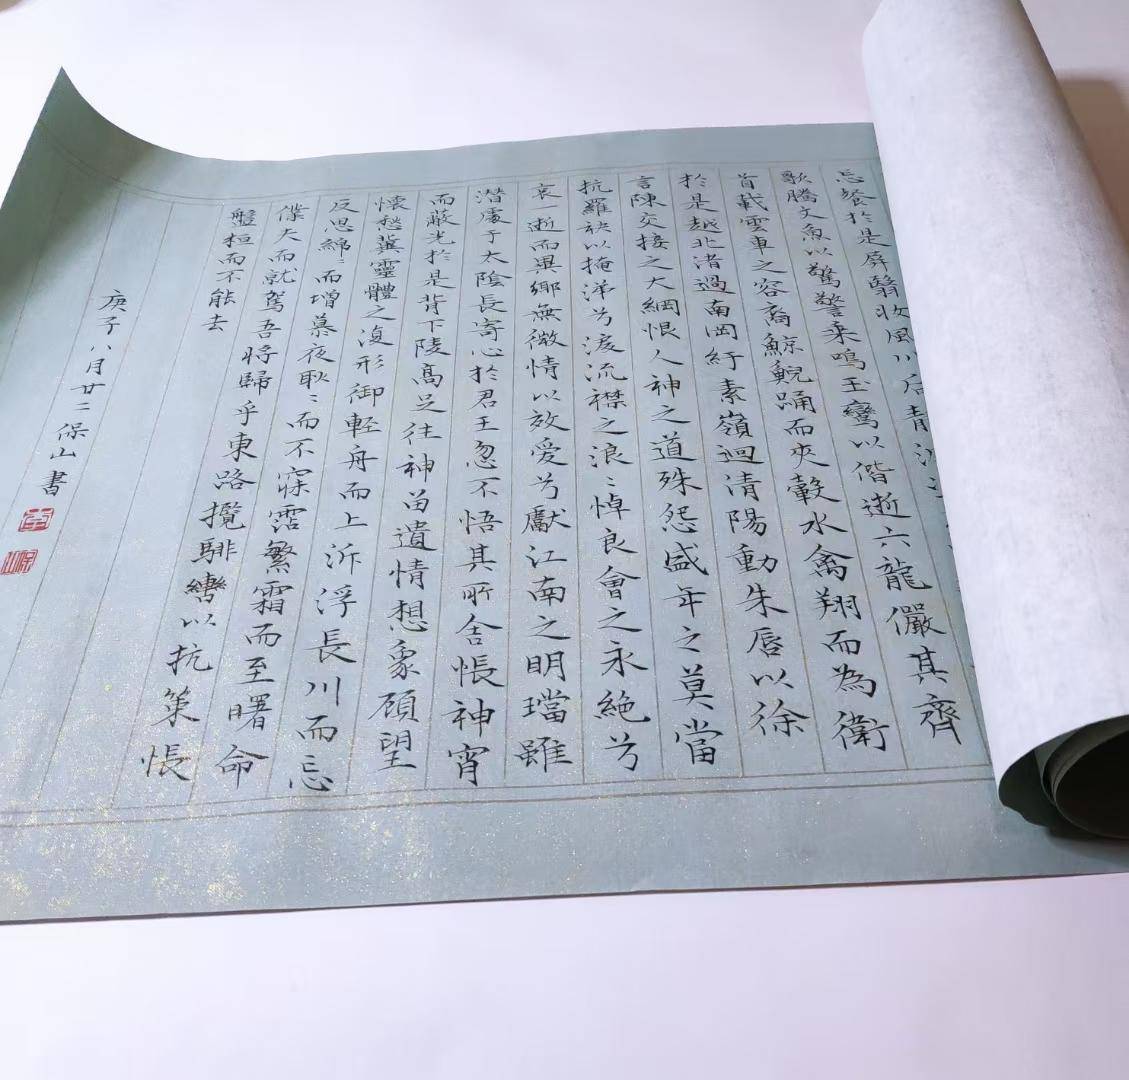 忘餐於是屏翳收風川后静
歌騰文魚以驚警乗鳴玉鸞以偕逝六龍儼其齊
首載雲車之容裔鯨鯢踊而夾轂水禽翔而為衛
於是越北渚過南岡紆素嶺迴清陽動朱唇以徐
言陳交接之大綱恨人神之道殊怨盛年之莫當
抗羅袂以掩涕兮淚流襟之浪〻悼良會之永絶兮
哀一逝而異鄉無微情以效愛兮獻江南之明璫雖
潜處于太陰長寄心於君王忽不悟其所舍悵神宵
而蔽光於是背下陵高足往神留遺情想象顧望
懷愁冀靈體之復形御輕舟而上泝浮長川而忘
反思綿〻而增慕夜耿〻而不寐霑繁霜而至曙命
僕夫而就駕吾將歸乎東路攬騑轡以抗策悵
盤桓而不能去
庚子八月廿二保山書